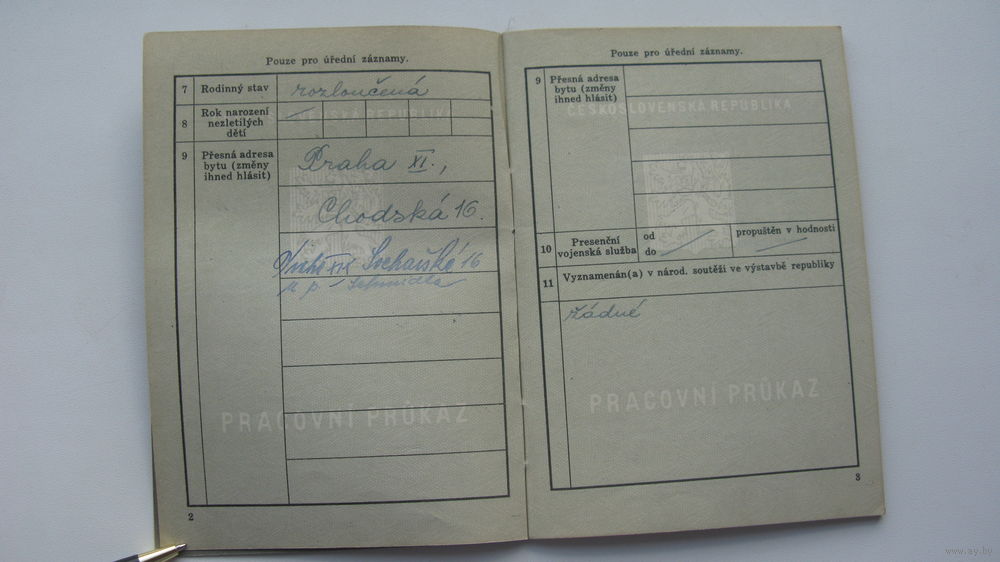 Pouze pro úřední záznamy.
7 Rodinný stav rozloučená
8 Rok narození nezletilých dětí
ČESKOSLOVENSKÁ REPUBLIKA
9 Přesná adresa bytu (změny ihned hlásit)
Praha XI.,
Chodská 16.
XIX 16
u p. Schmidta
PRACOVNÍ PRŮKAZ
2
Pouze pro úřední záznamy.
9 Přesná adresa bytu (změny ihned hlásit)
ČESKOSLOVENSKÁ REPUBLIKA
10 Presenční vojenská služba od do propuštěn v hodnosti
11 Vyznamenán(a) v národ. soutěži ve výstavbě republiky
žádné
PRACOVNÍ PRŮKAZ
3
www.ay.by